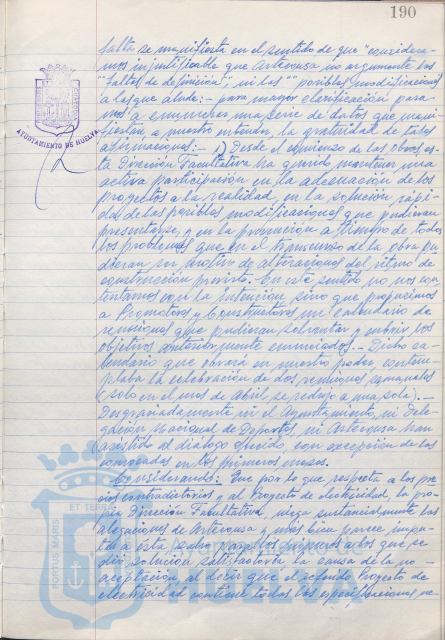 190
falta se manifiesta en el sentido de que "considera-
mos injustificable que Artencusa no argumente las
"faltas de definición", ni las "" posibles modificaciones
a las que alude:- para mayor clarificación pasa-
mos a enumerar una serie de datos que mani-
fiestan a nuestro entender, la gratuidad de tales
afirmaciones:- 1) Desde el comienzo de las obras es-
ta Dirección Facultativa ha querido mantener una
activa participación en la adecuación de los
proyectos a la realidad, en la solución rápi-
da de las posibles modificaciones que pudieran
presentarse, y en la prevención a tiempo de todos
los problemas que en el transcurso de la obra pu-
dieran ser motivo de alteraciones del ritmo de
construcción previsto. En este sentido no nos con-
tentamos con la intención sino que propusimos
a Promotores y Constructores un calendario de
reuniones que pudieran solventar y cubrir los
objetivos anteriormente enunciados.- Dicho ca-
lendario que obrará en nuestro poder contem-
plaba la celebración de dos reuniones semanales
(solo en el mes de Abril se redujo a una sola).-
Desgraciadamente ni el Ayuntamiento, ni Dele-
gación Nacional de Deportes, ni Artencusa han
asistido al diálogo ofrecido, con excepción de las
convocadas en los primeros meses.
Considerando: Que por lo que respecta a los pre-
cios contradictorios y al Proyecto de electricidad, la pro-
pia Dirección Facultativa, niega sustancialmente las
alegaciones de Artencusa y más bien parece impu-
tar a esta
solución satisfactoria la causa de la no-
aceptación, al decir que el referido Proyecto de
electricidad contiene todas las especificaciones ne-
AYUNTAMIENTO DE HUELVA
PORTUS MARIS
ET TERRE
HUELVA